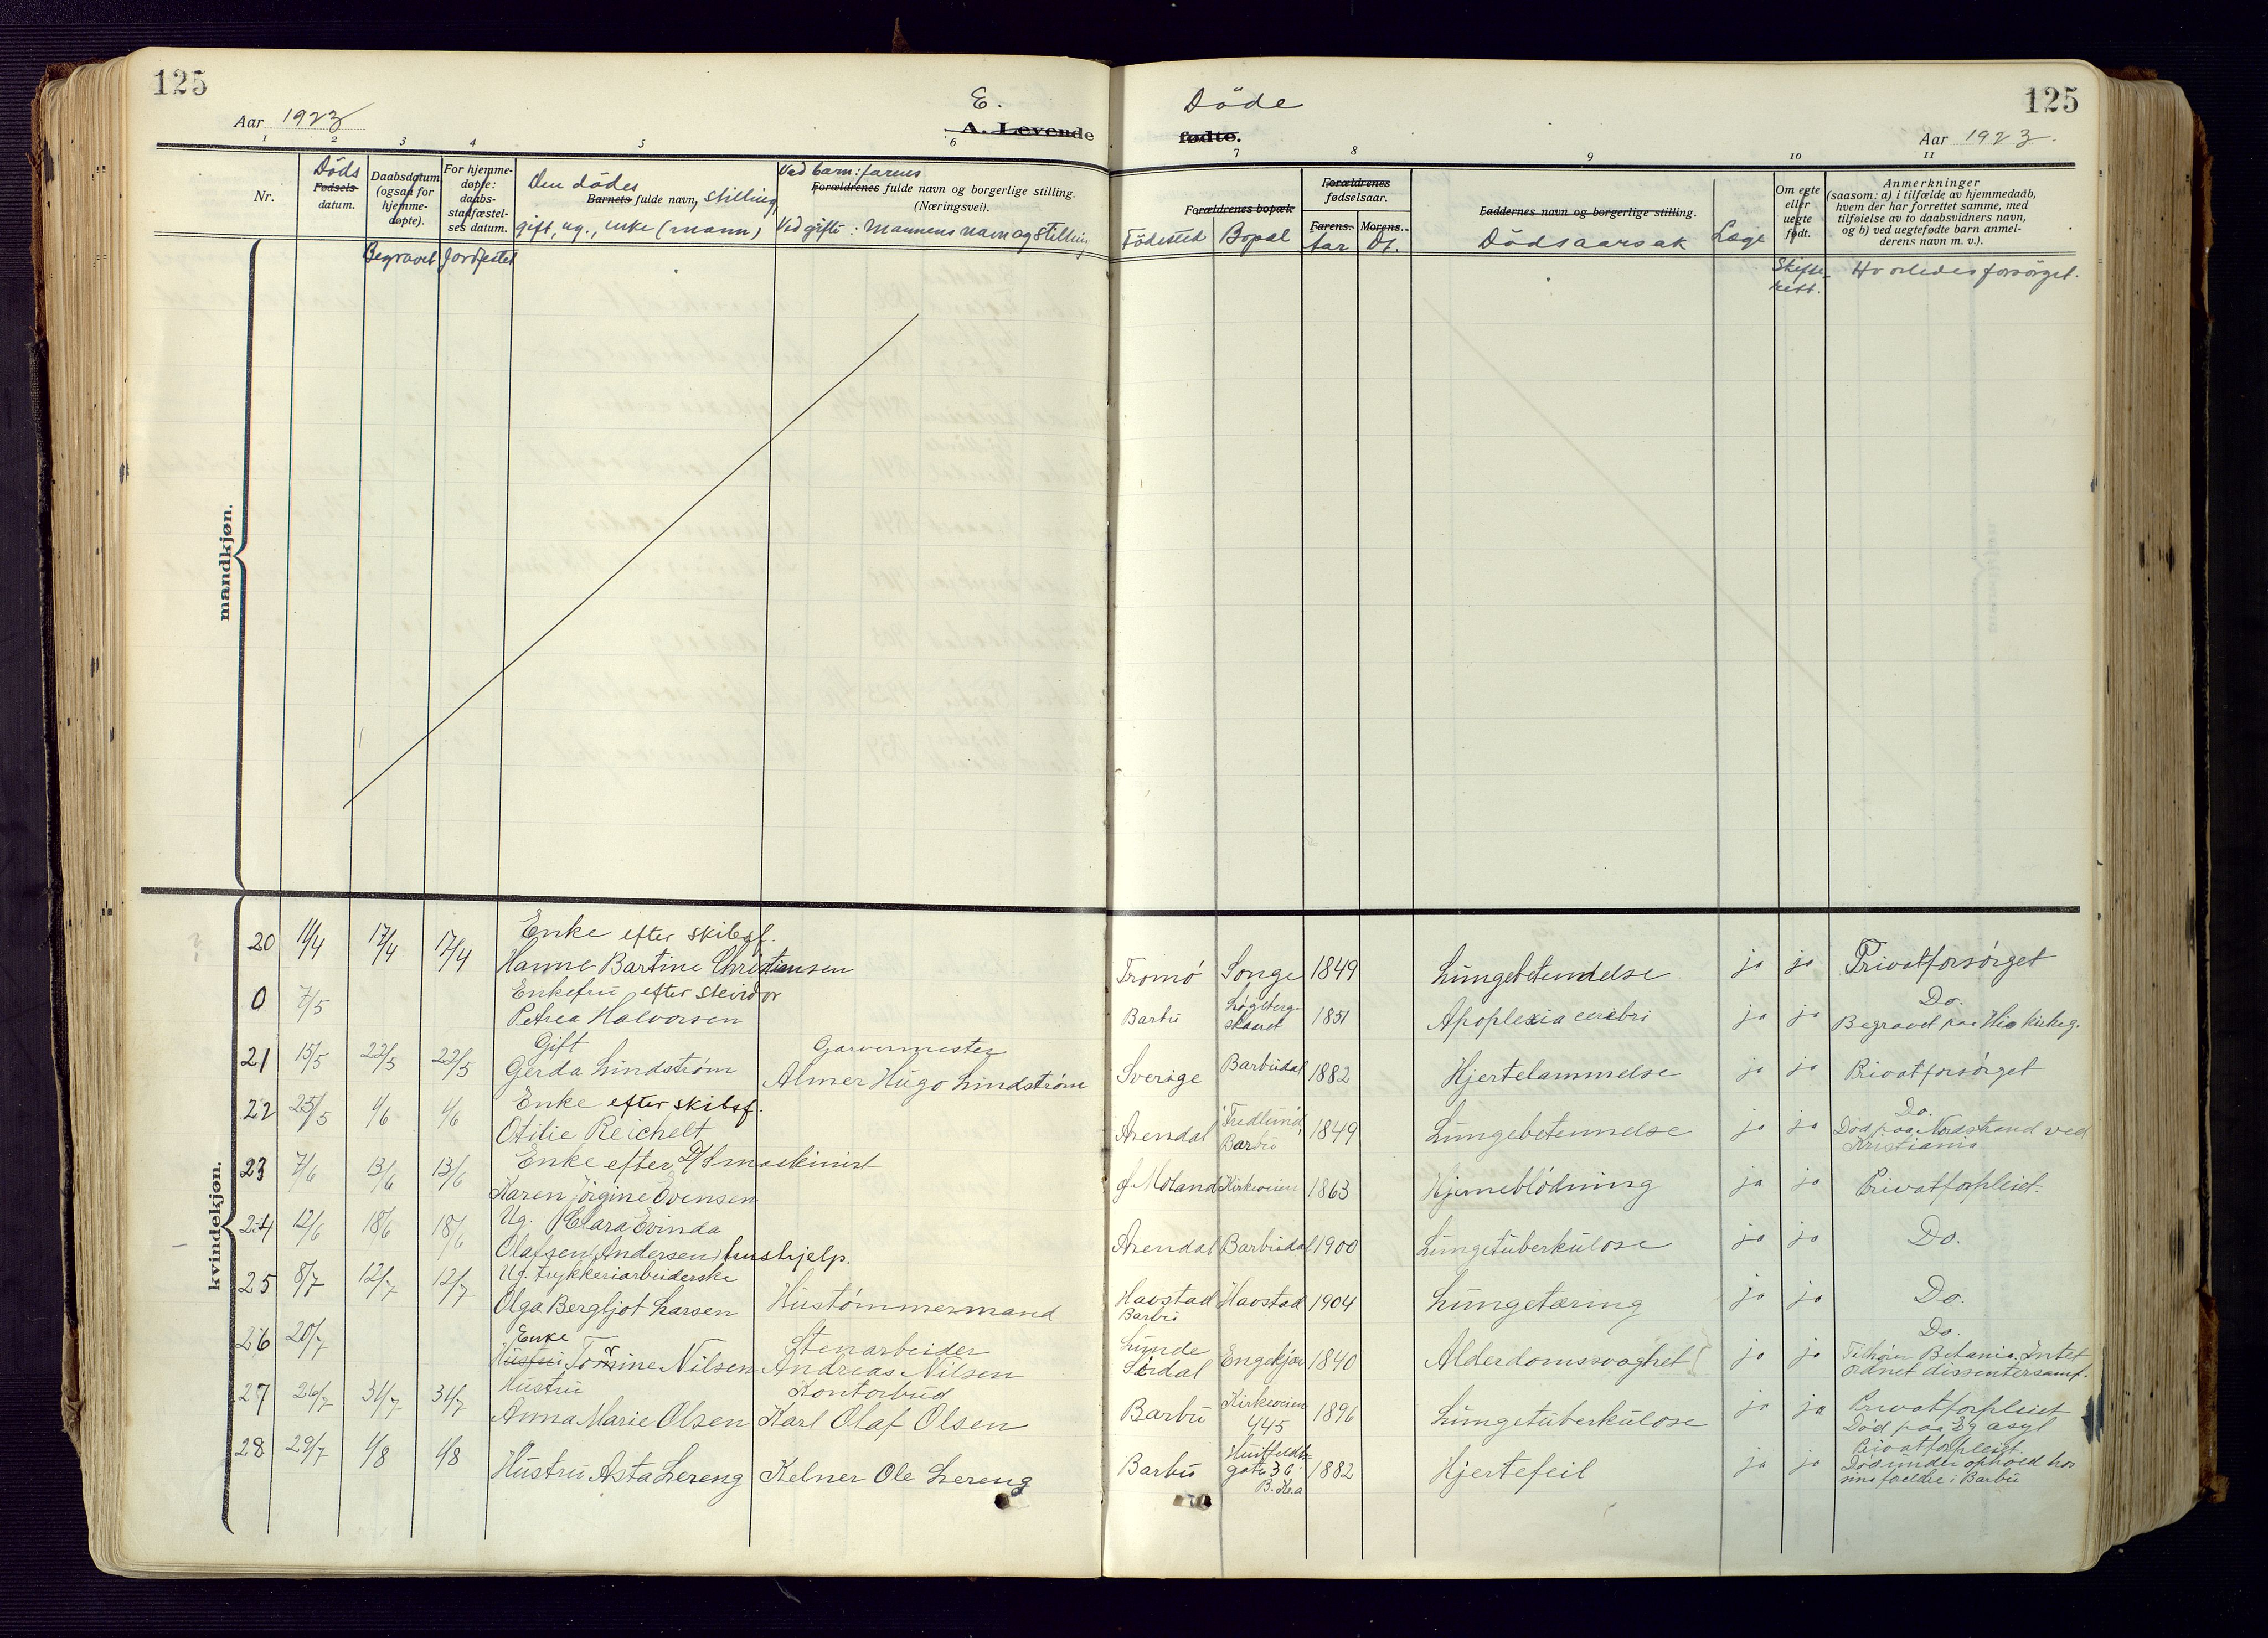 125
Aar 1923
E.
A. Levende
Døde
fødte.
125
Aar 1923.
1 2 3 4 5 6 7 8 9 10 11
Nr.
Døds
Fødsels-
datum.
Daabsdatum
(ogsaa for
hjemme-
døpte).
Begravet
For hjemme-
døpte:
daabs-
stadfæstel-
ses datum.
Jordfestet
Den dødes
Barnets fulde navn, stilling,
gift, ug., enke (mann)
Ved barn: farens
Forældrenes fulde navn og borgerlige stilling.
(Næringsvei).
Ved gifte: Mannens navn og stilling
Forældrenes bopæl.
Fødested Bopæl
Forældrenes
fødselsaar.
Farens. Morens.
Aar Dt.
Faddernes navn og borgerlige stilling.
Dødsaarsak Læge
Om egte
eller
uegte
født.
Skifte-
rett.
Anmerkninger
(saasom: a) i tilfælde av hjemmedaab,
hvem der har forrettet samme, med
tilføielse av to daabsvidners navn,
og b) ved uegtefødte barn anmel-
derens navn m. v.).
Hvorledes forsørget.
mandkjøn.
kvindekjøn.
Enke efter skibsf.
20 11/4 17/4 17/4 Hanne Bartine Christiansen Tromö Songe 1849 Lungebetendelse ja ja Privatforsørget
Enkefru efter stevidor
0 7/5 Petrea Halvorsen Barbu Løgeberg-
skaaret 1851 Apoplexia cerebri ja ja Do.
Begravet paa His kirkeg.
Gift Garvermester
21 15/5 22/5 22/5 Gerda Lindstrøm Almer Hugo Lindstrøm Sverige Barbudal 1882 Hjertelammelse ja ja Privatforsørget
Enke efter skibsf.
22 25/5 1/6 1/6 Otilie Reichelt Arendal Fredlund,
Barbu 1849 Lungebetennelse ja ja Do.
Død paa Nordstrand ved
Kristiania
Enke efter D/S maskinist
23 7/6 13/6 13/6 Karen Jörgine Evensen Ø Moland Kirkeveien 1863 Hjerneblödning ja ja Privatforpleiet.
Ug. Clara Evinda
24 12/6 18/6 18/6 Olafsen (Andersen) hushjelp. Arendal Barbudal 1900 Lungetuberkulose ja ja Do.
Ug. trykkeriarbeiderske
25 8/7 12/7 12/7 Olga Bergljot Larsen Hustømmermand Havstad
Barbu Havstad 1904 Lungetæring ja ja Do.
Enke Stenarbeider
26 20/7 Hustru Tomine Nilsen Andreas Nilsen Lunde
Sirdal Engekjær 1840 Alderdomssvaghet ja ja Do.
Tilhører Betania. Intet
ordnet dissentersamf.
Hustru Kontorbud
27 26/7 31/7 31/7 Anna Marie Olsen Karl Olaf Olsen Barbu Kirkeveien
445 1896 Lungetuberkulose ja ja Privatforpleiet
Død paa Eg asyl
28 29/7 1/8 1/8 Hustru Asta Lereng Kelner Ole Lereng Barbu Huitfeldts
gate 36
Kr.a 1882 Hjertefeil ja ja Privatforpleiet.
Død under ophold hos
sine foreldre i Barbu